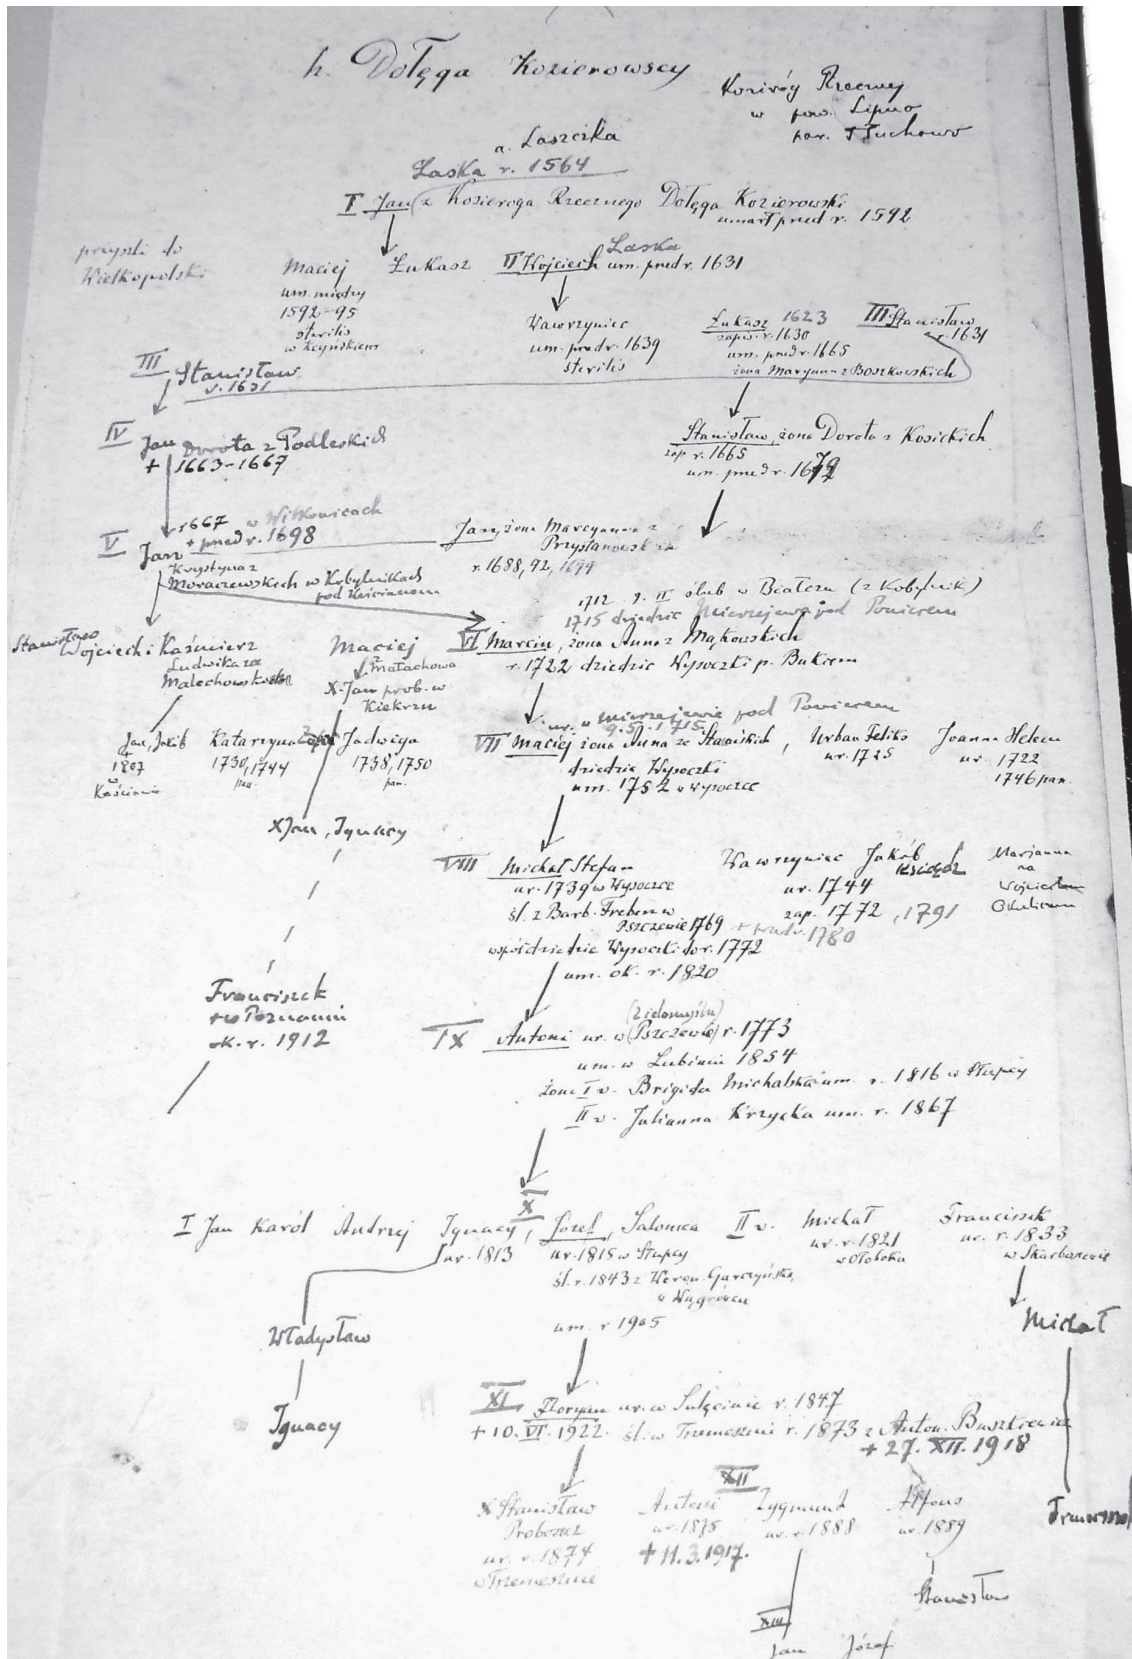 h. Dołęga Kozierowscy
Koziróg Rzeczny
w pow. Lipno
par. Tłuchowo
a. Laszczka
Łaska r. 1564
I Jan z Kozieroga Rzecznego Dołęga Kozierowski
umarł przed r. 1592
przyszli do
Wielkopolski
Maciej
um. między
1592-95
sterilis
w Kcyńskiem
Łukasz
Laska
II Wojciech um. przed r. 1631
Wawrzyniec
um. przed r. 1639
sterilis
Łukasz 1623
zapis. r. 1630
um. przed r. 1665
żona Maryanna z Boszkowskich
III Stanisław
r. 1631
III Stanisław
r. 1631
IV Jan Dorota z Podleskich
+ 1663-1667
Stanisław, żona Dorota z Kosickich
zap r. 1665
um. przed r. 1672
r. 1667 w Witkowicach
+ przed r. 1698
V Jan
Krystyna z
Moraczewskich w Kobylnikach
pod Kościanem
Jan, żona Marcyanna z
Przystanowskich
r. 1688, 92, 1699
1712 9. II ślub w Białczu (z Kobylnik)
1715 dziedzic Mierzejewa pod Poniecem
VI Marcin, żona Anna z Mąkowskich
r. 1722 dziedzic Wysoczki p. Bukiem
Stanisław
Wojciech i Kaźmierz
Ludwika ze
Malechowskich
Maciej
z Małachowa
X. Jan prob. w
Kiekrzu
Jan, Jakib
+
1807
w
Kościanie
Katarzyna Zofia Jadwiga
1730, 1744
pan.
1738, 1750
pan.
ur. w Mierzejewie pod Poniecem
9. 5. 1715
VII Maciej żona Anna ze Stawskich,
dziedzic Wysoczki
um. 1752 w Wysoczce
Urban Feliks
ur. 1725
Joanna Helena
ur. 1722
1746 pan.
X Jan, Ignacy
VIII Michał Stefan
ur. 1739 w Wysoczce
śl. z Barb. Freben w
Pszczewie 1769
współdziedzic Wysoczki do r. 1772
um. ok. r. 1820
Wawrzyniec Jakób
ksiądz
ur. 1744
zap. 1772, 1791
+ przed r. 1780
Marianna
na
Wojciechu
Franciszek
+ w Poznaniu
ok. r. 1912
(Zielomyślu)
IX Antoni ur. w (Pszczewie) r. 1773
um. w Lubiniu 1854
żona I v. Brigida Michalska um. r. 1816 w Słupcy
II v. Julianna Krzycka um. r. 1867
X
I Jan Karól Andrzej Ignacy, Józef, Salomea II v. Michał Franciszek
ur. 1813
ur. 1815 w Słupcy
śl. r. 1843 z Weron. Garczyńską
w Wągrówcu
um. r 1905
ur. r. 1821
w Ołoboku
ur. r. 1833
w Skarboszewie
Władysław
Ignacy
Michał
XI Floryan ur. w Sulęcinie r. 1847
+ 10. VI. 1922. śl. w Trzemesznie r. 1873 z Anton. Buszkiewicz
+ 27. XII. 1918
XII
X Stanisław
Proboszcz
ur. r. 1874
w Trzemesznie
Antoni
ur. 1875
+ 11. 3. 1917.
Zygmunt
ur. r. 1888
Alfons
ur. 1889
Stanisław
XIII
Jan Józef